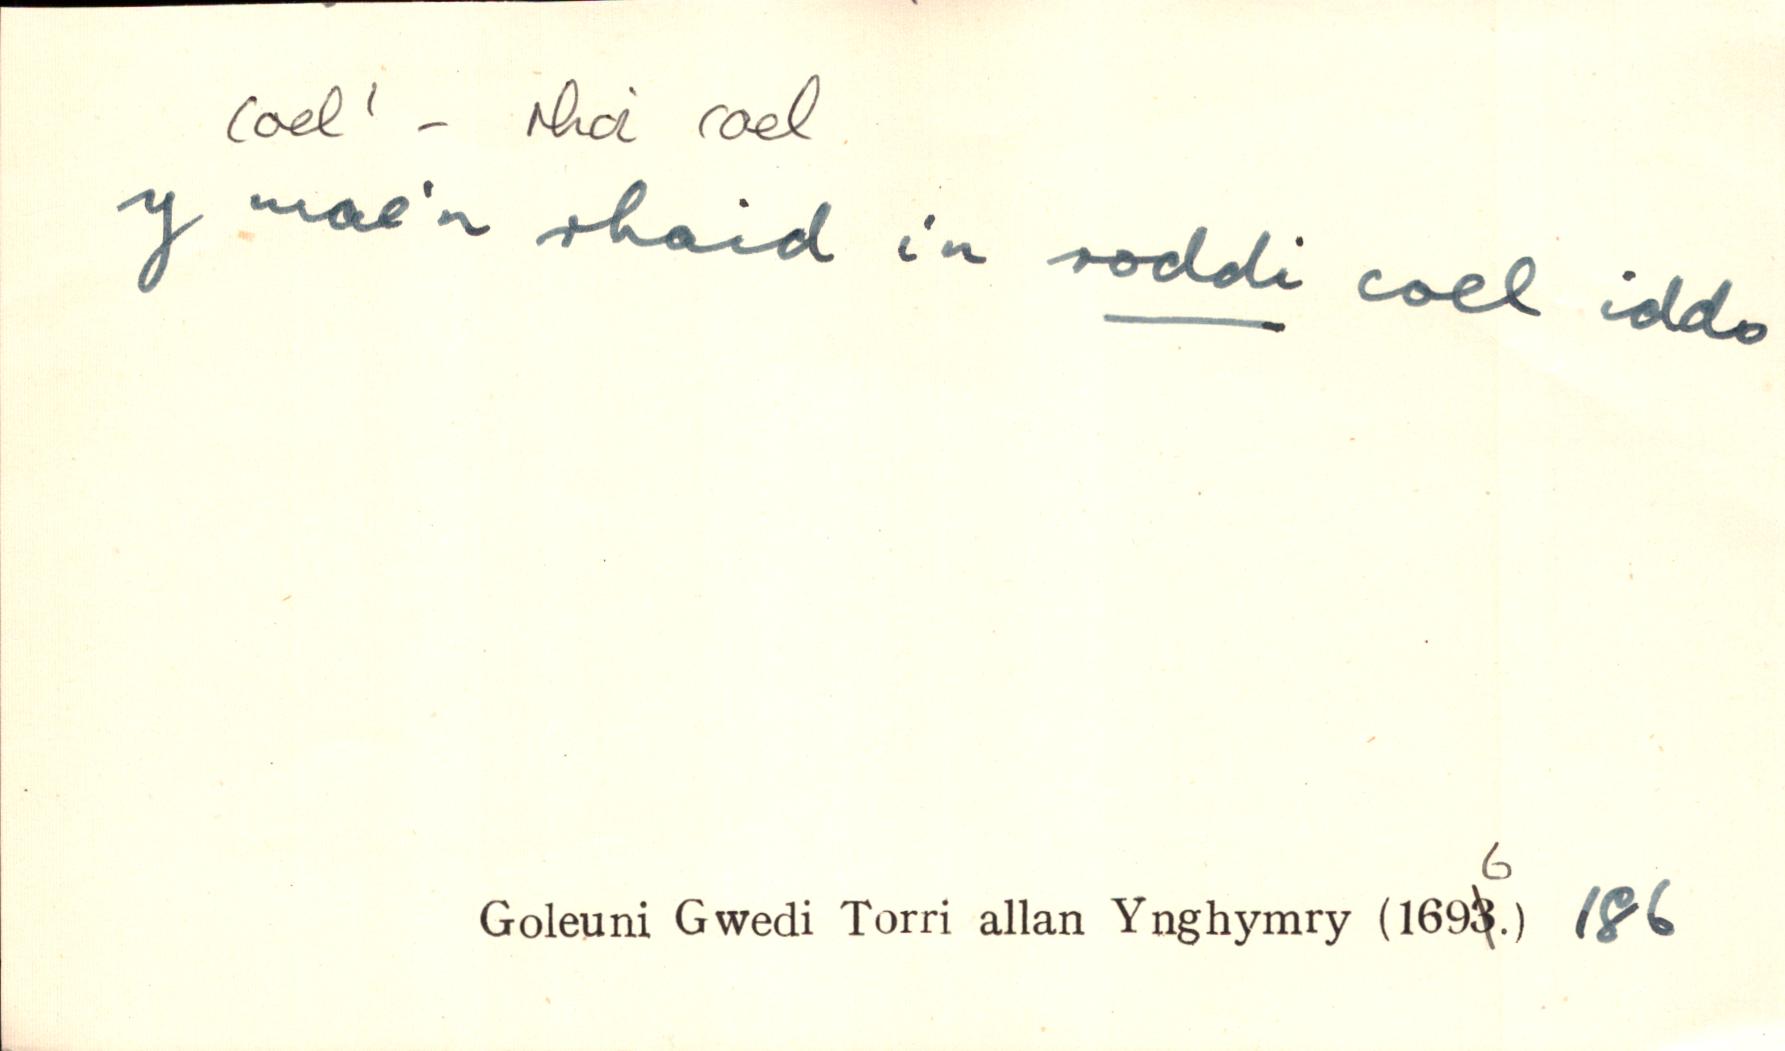 coel¹ - rhoi coel
y mae'n rhaid i'n roddi coel iddo
Goleuni Gwedi Torri allan Ynghymry (1696.) 186